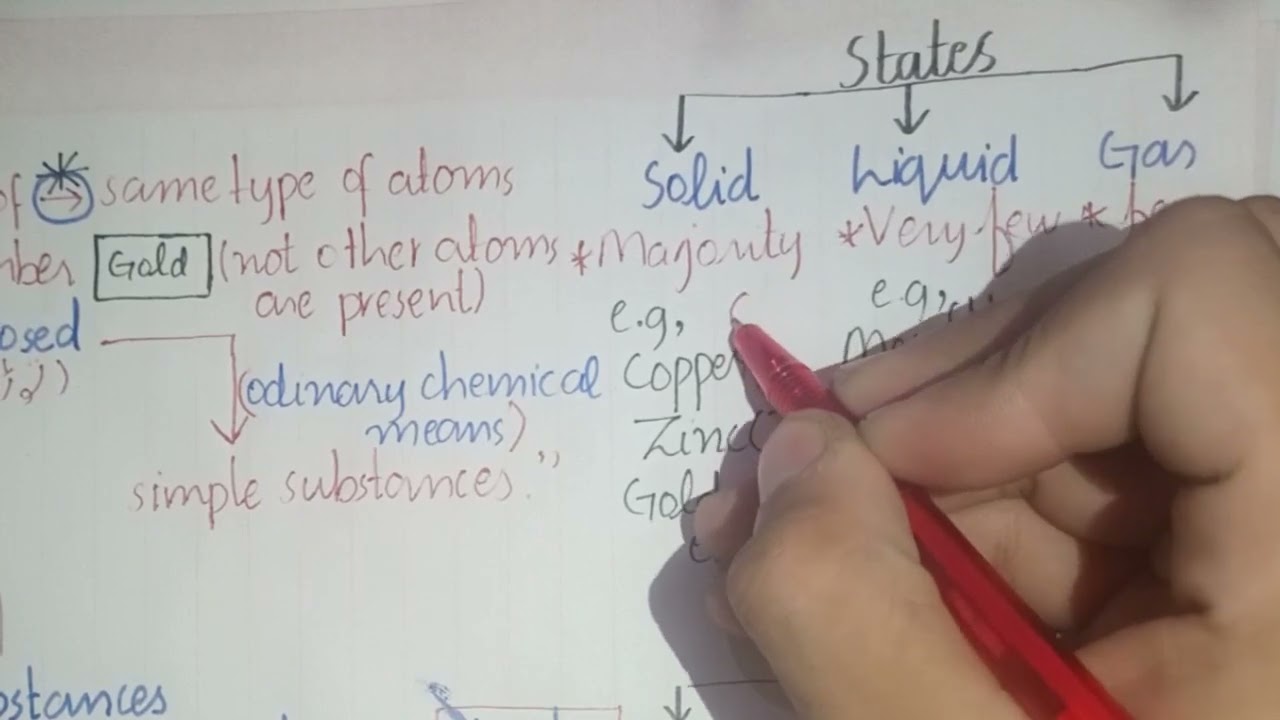 States
Solid Liquid Gas
of same type of atoms
Gold (not other atoms
are present)
*Majority *Very few *
e.g, e.g,
(odinary chemical
means)
simple substances."
Copper
Zinc
Gold